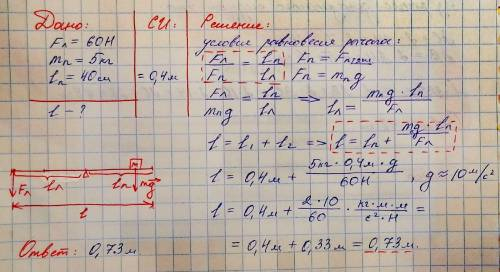 Дано:
Fл = 60Н
mп = 5кг
lп = 40см
l - ?
СИ:
= 0,4м
Решение:
условие равновесия рычагов:
Fл/Fп = lп/lл Fп = Fп тяж
Fп = mпg
Fл/mпg = lп/lл => lл = mпg · lп/Fл
l = l1 + l2 => l = lп + mg · lп/Fл
l = 0,4м + 5кг · 0,4м · g/60Н , g ≈ 10 м/с²
l = 0,4м + 2 · 10/60 · кг · м · м/с² · Н =
= 0,4м + 0,33м = 0,73м.
Fл
lл
lп
m
mg
l
Ответ: 0,73м